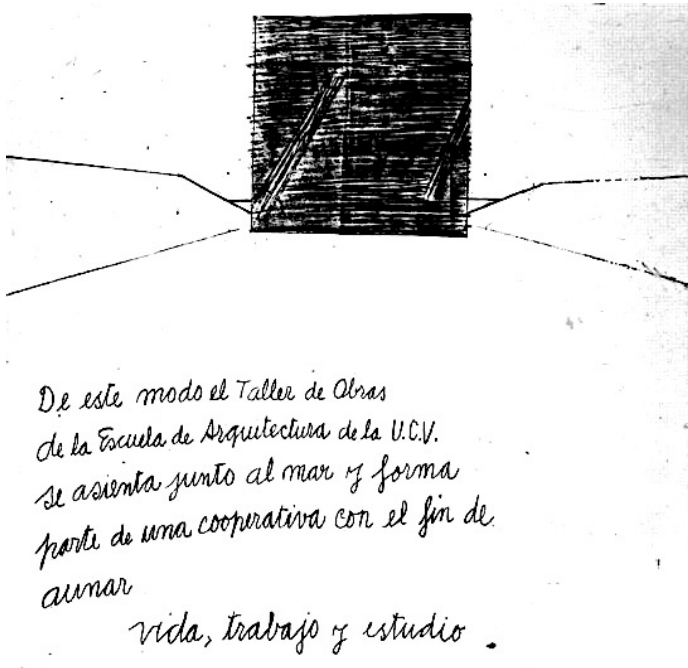 De este modo el Taller de Obras
de la Escuela de Arquitectura de la U.C.V.
se asienta junto al mar y forma
parte de una cooperativa con el fin de
aunar
vida, trabajo y estudio.